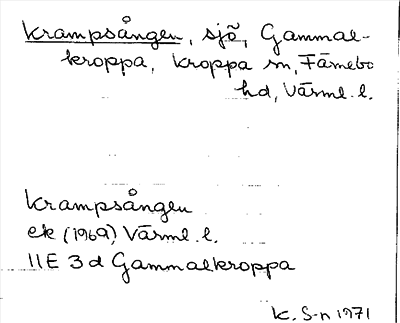 Krampsången, sjö, Gammal-
kroppa, Kroppa sn, Färnebo
hd, Värml. l.
Krampsången
ek (1969) Värml. l.
11E 3d Gammalkroppa
K. S-n 1971